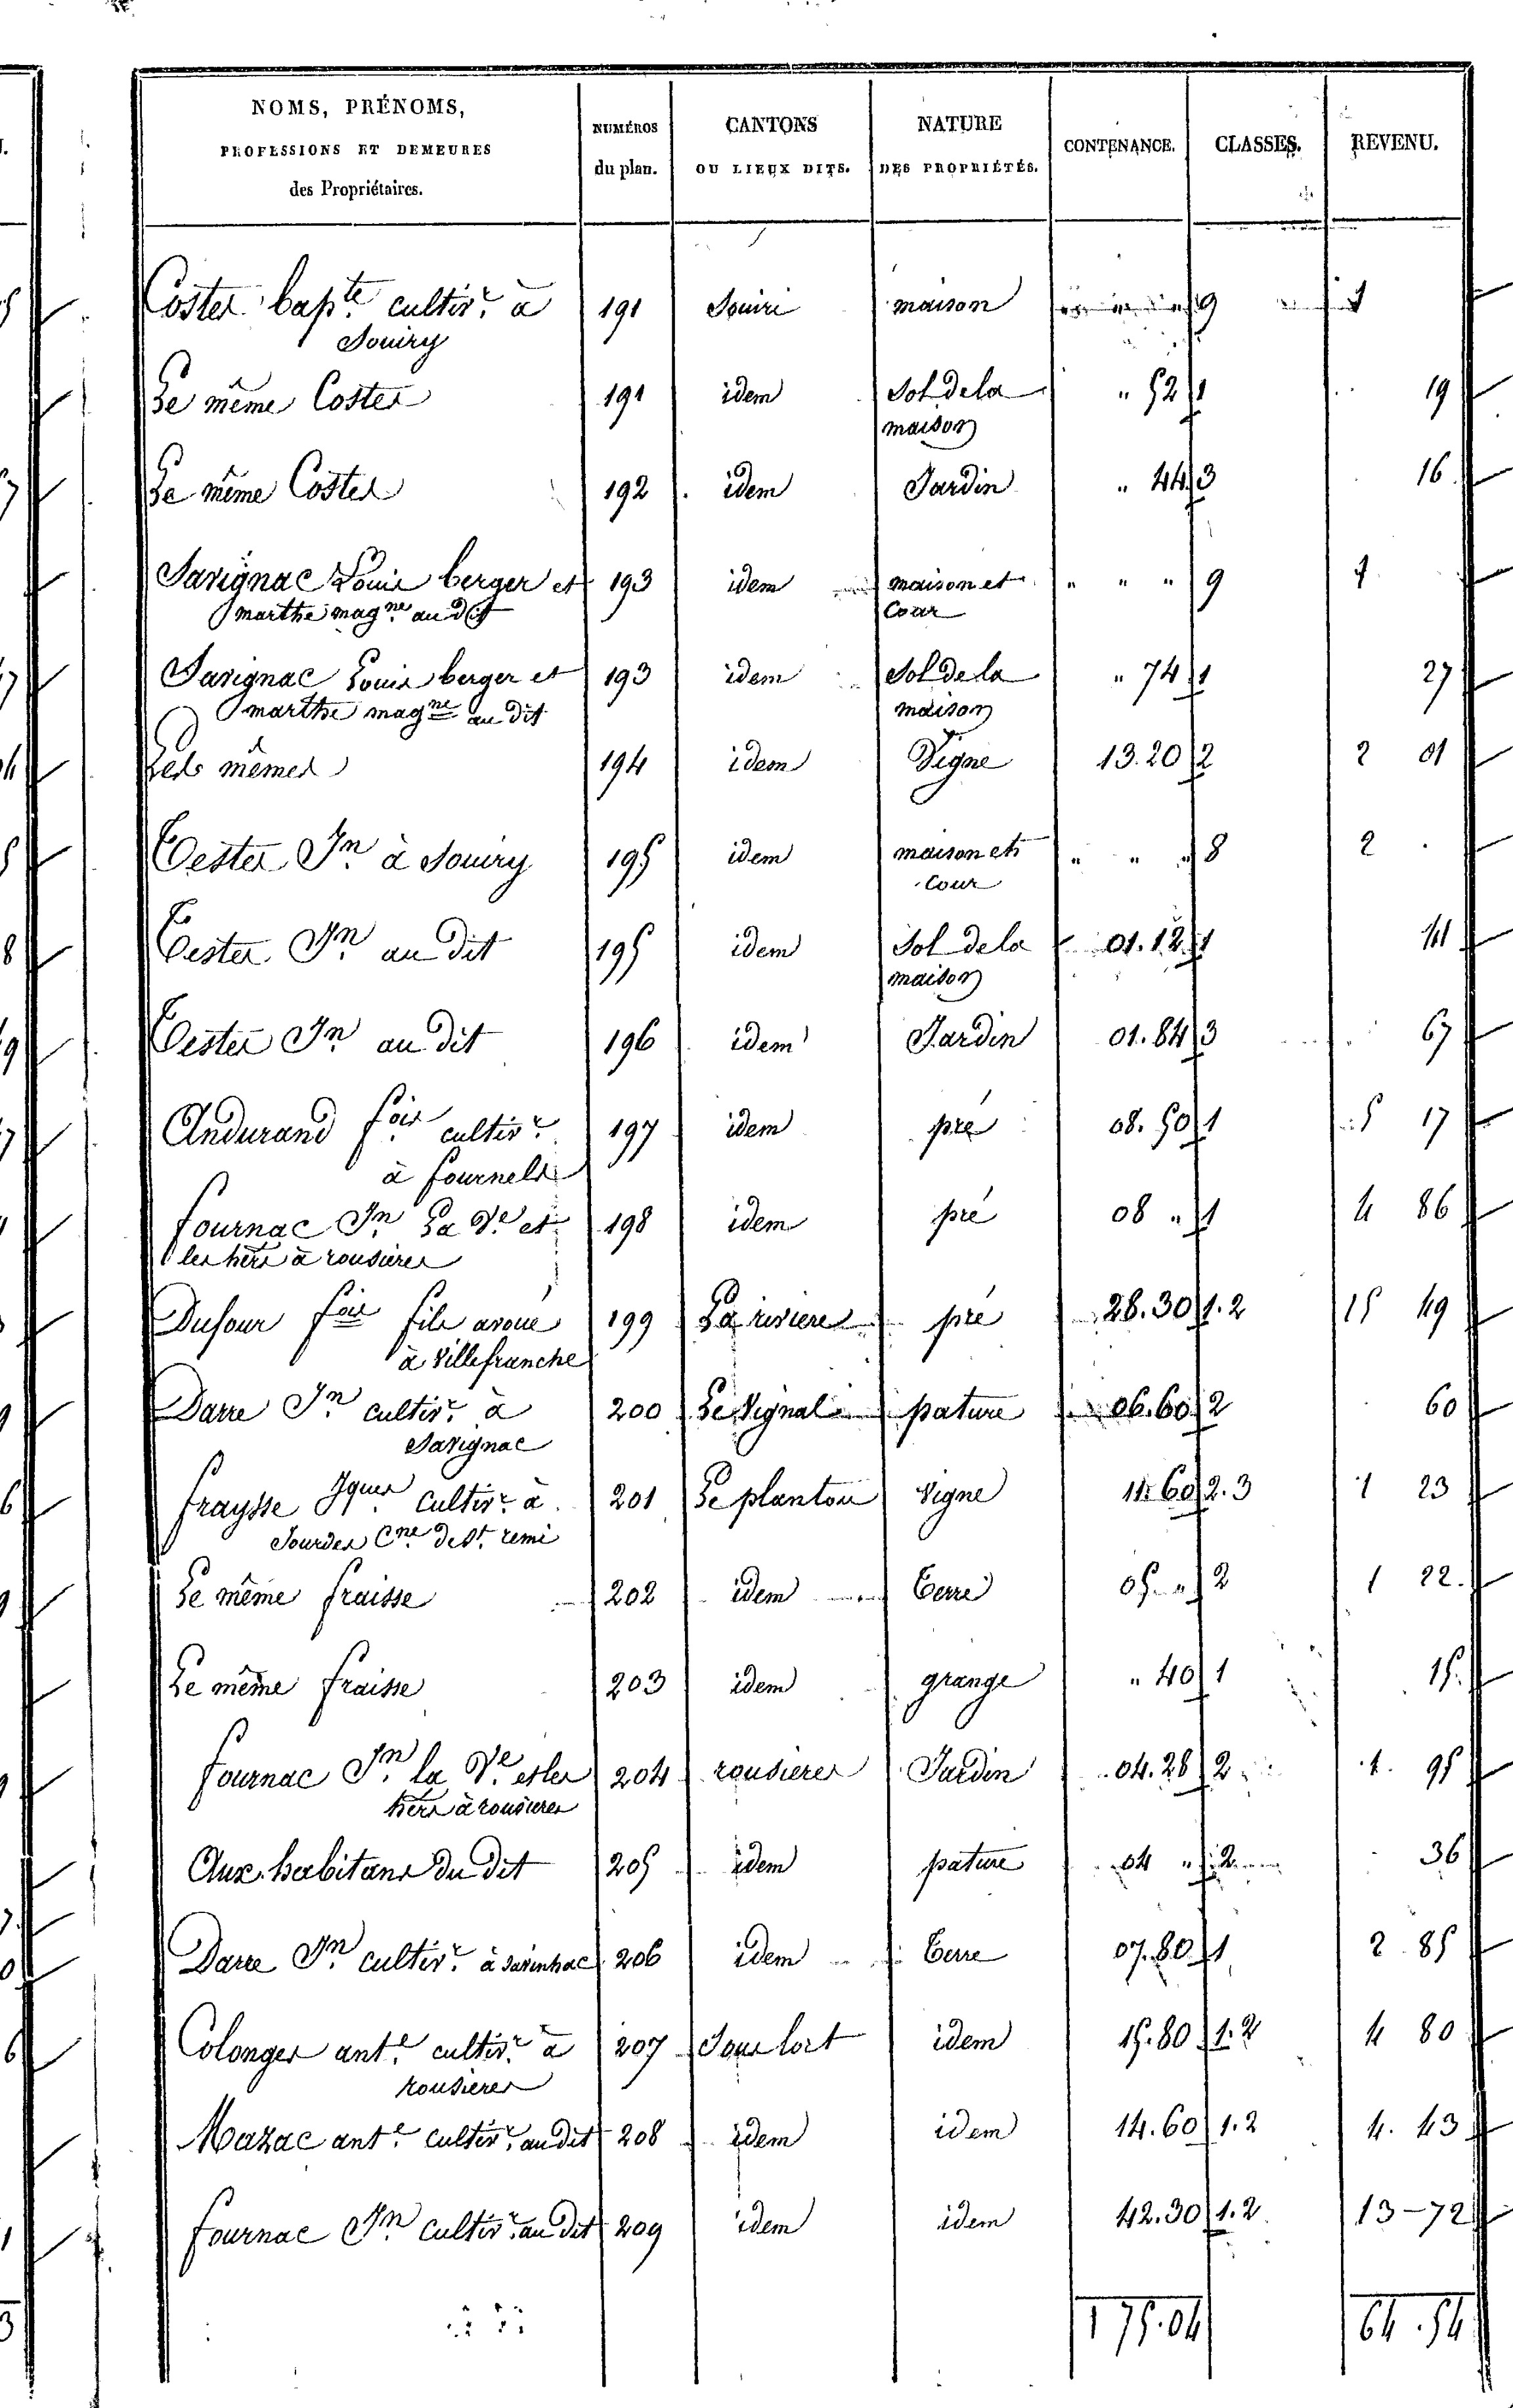 NOMS, PRÉNOMS, PROFESSIONS ET DEMEURES des Propriétaires. NUMÉROS du plan. CANTONS OU LIEUX DITS. NATURE DES PROPRIÉTÉS. CONTENANCE. CLASSES. REVENU.
Coster bapte cultivr à 191 Souiri maison " " " 9 1
Souiry
Le même Coster 191 idem Sol de la " 52 1 19
maison
Le même Coster 192 idem Jardin " 44 3 16
Savignac Louis berger et 193 idem maison et " " " 9 1
marthe magne au dit Cour
Savignac Louis berger et 193 idem Sol de la " 74 1 27
marthe magne au dit maison
Les mêmes 194 idem Vigne 13.20 2 2 01
Tester Jn à Souiry 195 idem maison et " " " 8 2
Cour
Tester Jn au dit 195 idem Sol de la 01.12 1 41
maison
Tester Jn au dit 196 idem Jardin 01.84 3 67
Andurand fois cultivr 197 idem pré 08.50 1 5 17
à fournels
fournac Jn La Ve et 198 idem pré 08 " 1 4 86
les hers à rousieres
Dufour fois fils avoué 199 La riviere pré 28.30 1.2 15 49
à Villefranche
Darre Jn cultivr à 200 Le Vignal pature 06.60 2 60
Savignac
fraysse Jques cultivr à 201 Le plantou Vigne 11.60 2.3 1 23
Sourdes Cne de St remi
Le même fraisse 202 idem Terre 05 " 2 1 22.
Le même fraisse 203 idem grange " 40 1 15.
fournac Jn la Ve et les 204 rousieres Jardin 04.28 2 1. 95
hers à rousieres
Aux habitans du dit 205 idem pature 04 " 2 36
Darre Jn cultivr à savinhac 206 idem Terre 07.80 1 2 85
Colonges ante cultivr à 207 Sous lort idem 15.80 1.2 4 80
rousieres
Mazac ante cultivr au dit 208 idem idem 14.60 1.2 4. 43
fournac Jn cultivr au dit 209 idem idem 42.30 1.2 13-72
175.04 64.54